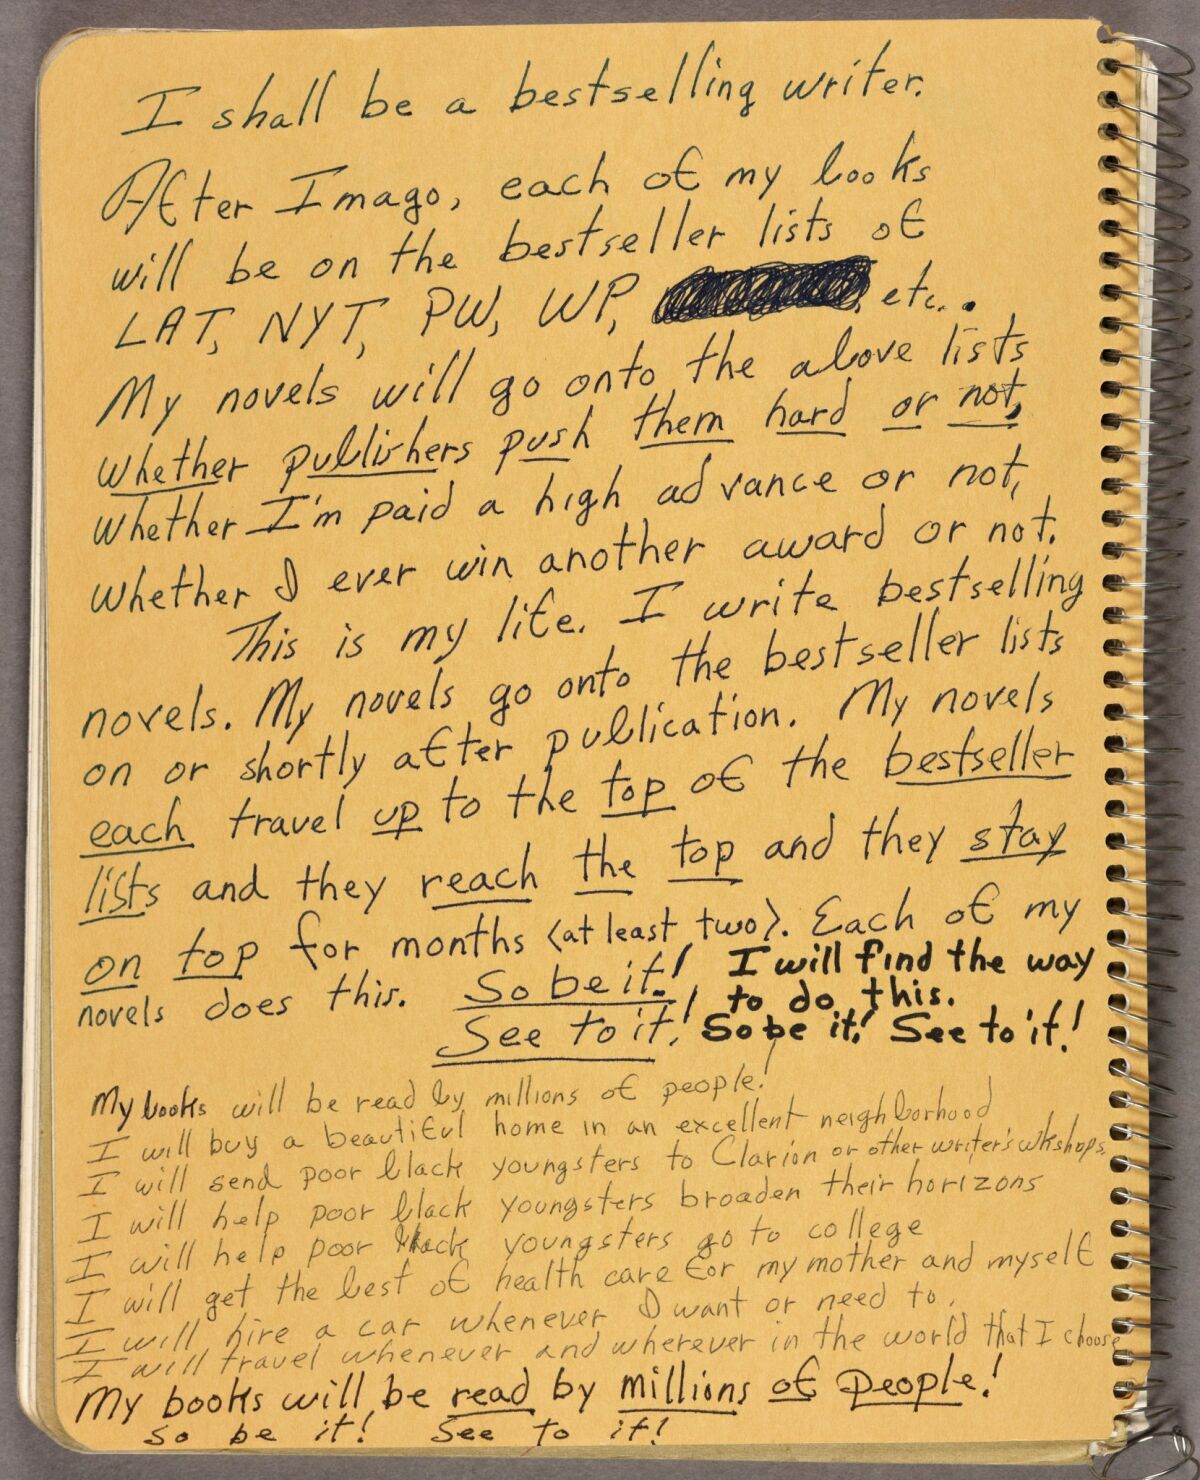 I shall be a bestselling writer.
After Imago, each of my books
will be on the bestseller lists of
LAT, NYT, PW, WP, etc..
My novels will go onto the above lists
whether publishers push them hard or not,
whether I'm paid a high advance or not,
whether I ever win another award or not.
This is my life. I write bestselling
novels. My novels go onto the bestseller lists
on or shortly after publication. My novels
each travel up to the top of the bestseller
lists and they reach the top and they stay
on top for months (at least two). Each of my
novels does this. So be it! I will find the way
to do this.
See to it! So be it! See to it!
My books will be read by millions of people!
I will buy a beautiful home in an excellent neighborhood
I will send poor black youngsters to Clarion or other writer's wkshops.
I will help poor black youngsters broaden their horizons
I will help poor black youngsters go to college
I will get the best of health care for my mother and myself
I will hire a car whenever I want or need to.
I will travel whenever and wherever in the world that I choose
My books will be read by millions of people!
So be it! See to it!